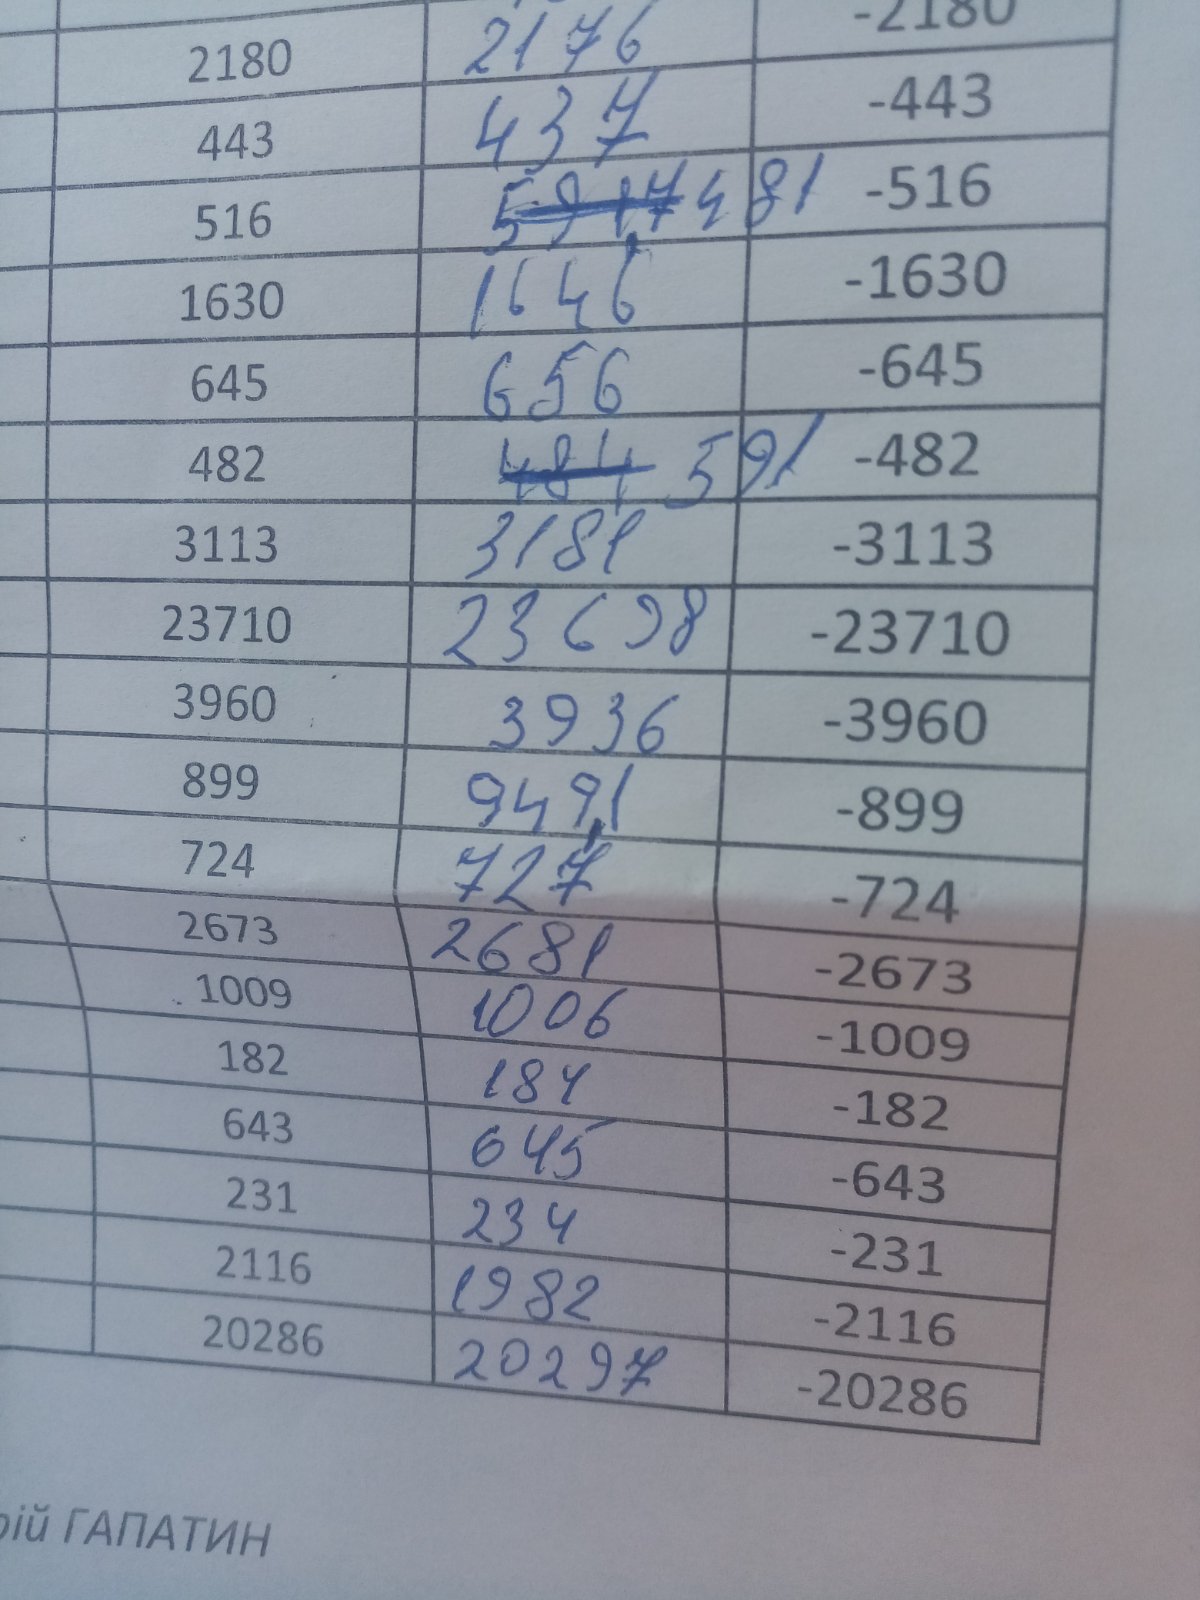 2180 2176 -2180
443 437 -443
516 481 -516
1630 1646 -1630
645 656 -645
482 484 591 -482
3113 3181 -3113
23710 23698 -23710
3960 3936 -3960
899 9491 -899
724 727 -724
2673 2681 -2673
1009 1006 -1009
182 184 -182
643 645 -643
231 234 -231
2116 1982 -2116
20286 20297 -20286
рій ГАПАТИН